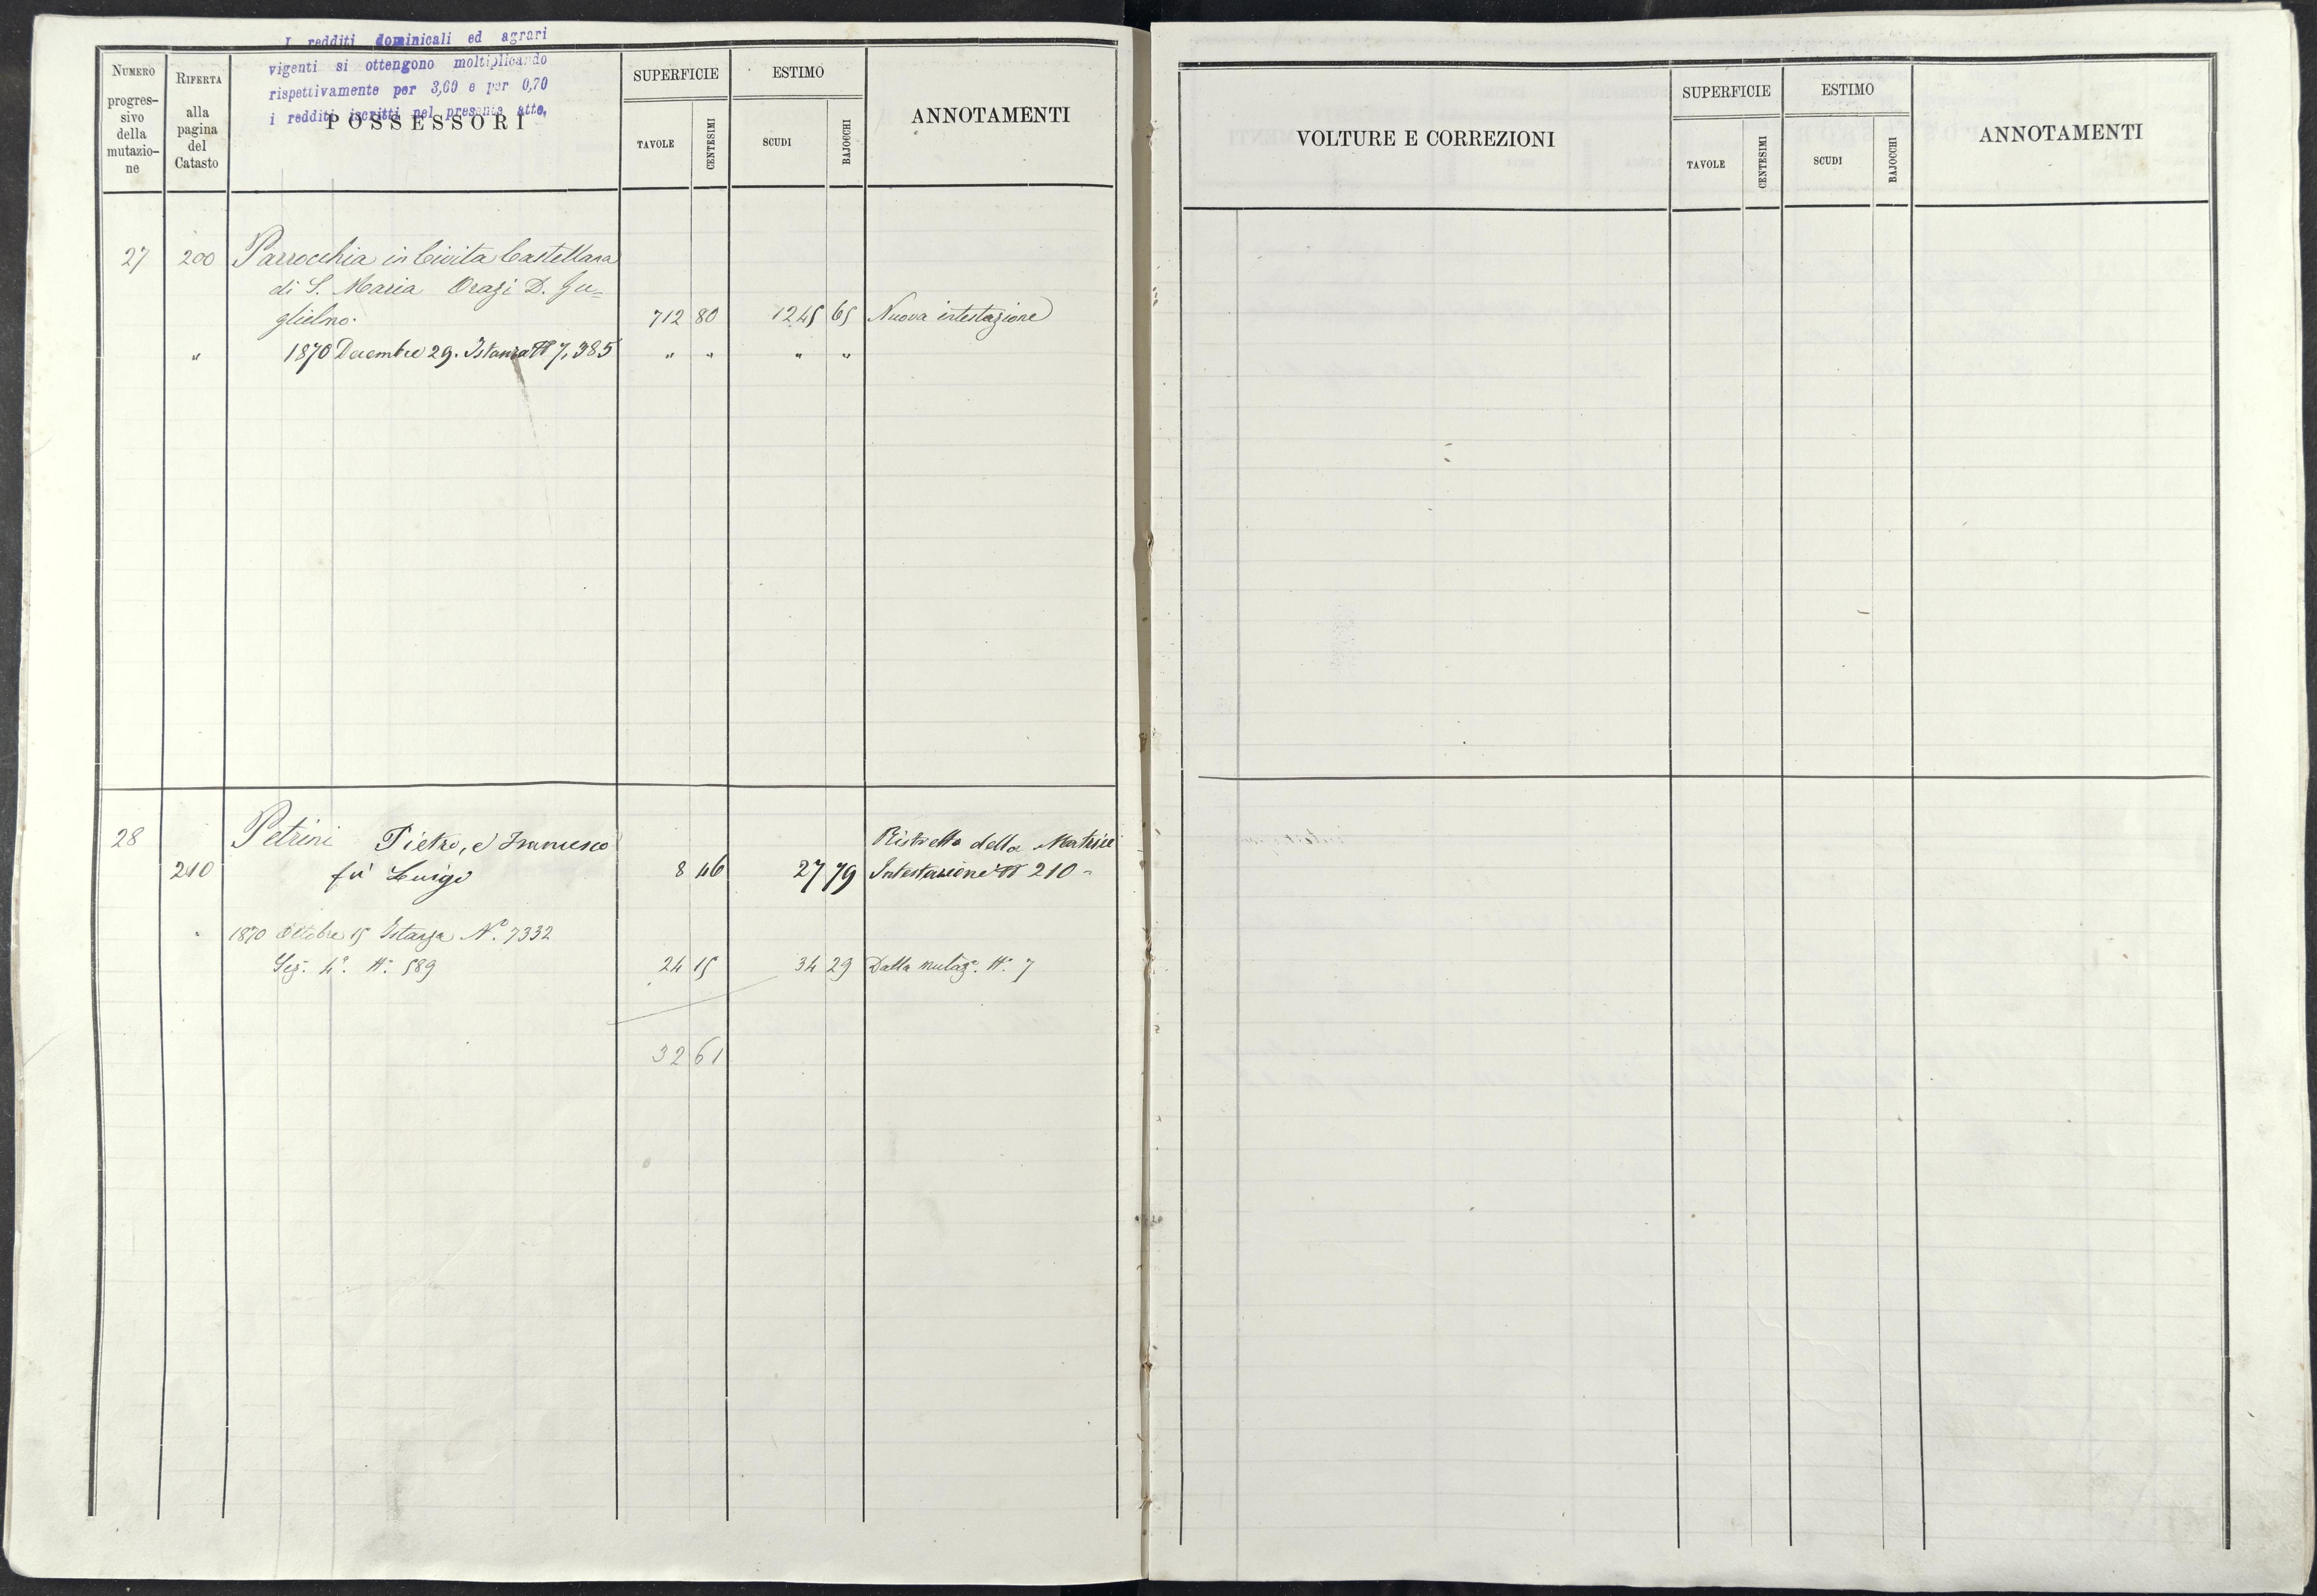 I redditi dominicali ed agrari
vigenti si ottengono moltiplicando
rispettivamente per 3,60 e per 0,70
i redditi iscritti nel presente atto.
NUMERO progres- sivo della mutazio- ne
RIFERTA alla pagina del Catasto
POSSESSORI
SUPERFICIE
TAVOLE CENTESIMI
ESTIMO
SCUDI BAJOCCHI
ANNOTAMENTI
27 200 Parrocchia in Civita Castellana
di S. Maria Orazi D. Gu=
glielmo. 712 80 1245 65 Nuova intestazione
" 1870 Decembre 29. Istanza N 7,385 " " " "
28 Petrini Pietro, e Francesco Ristretto della Matrice
210 fù Luigi 8 46 27 79 Intestazione N 210 -
" 1870 Ottobre 15 Istanza N. 7332
Sez. 4a. N. 589 24 15 34 29 Dalla mutaz.e N. 7
32 61
VOLTURE E CORREZIONI
SUPERFICIE
TAVOLE CENTESIMI
ESTIMO
SCUDI BAJOCCHI
ANNOTAMENTI